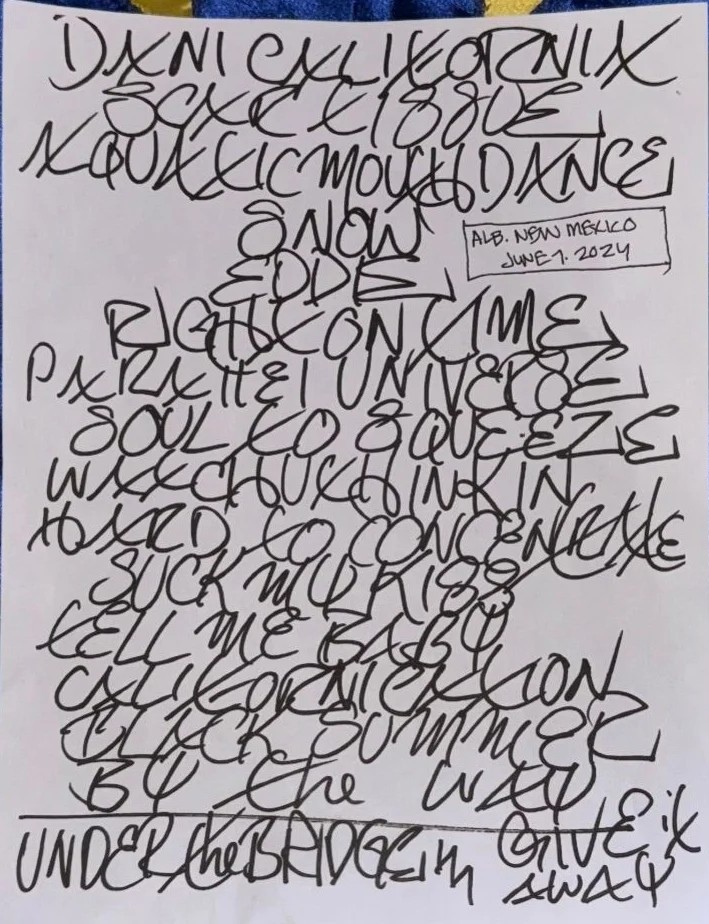 DANI CALIFORNIA
SCAR TISSUE
AQUATIC MOUTH DANCE
SNOW
ALB. NEW MEXICO
JUNE 7. 2024
EDDIE
RIGHT ON TIME
PARALLEL UNIVERSE
SOUL TO SQUEEZE
WATCHUTHINKIN
HARD TO CONCENTRATE
SUCK MY KISS
TELL ME BABY
CALIFORNICATION
BLACK SUMMER
BY the WAY
UNDER the BRIDGE GIVE it
AWAY